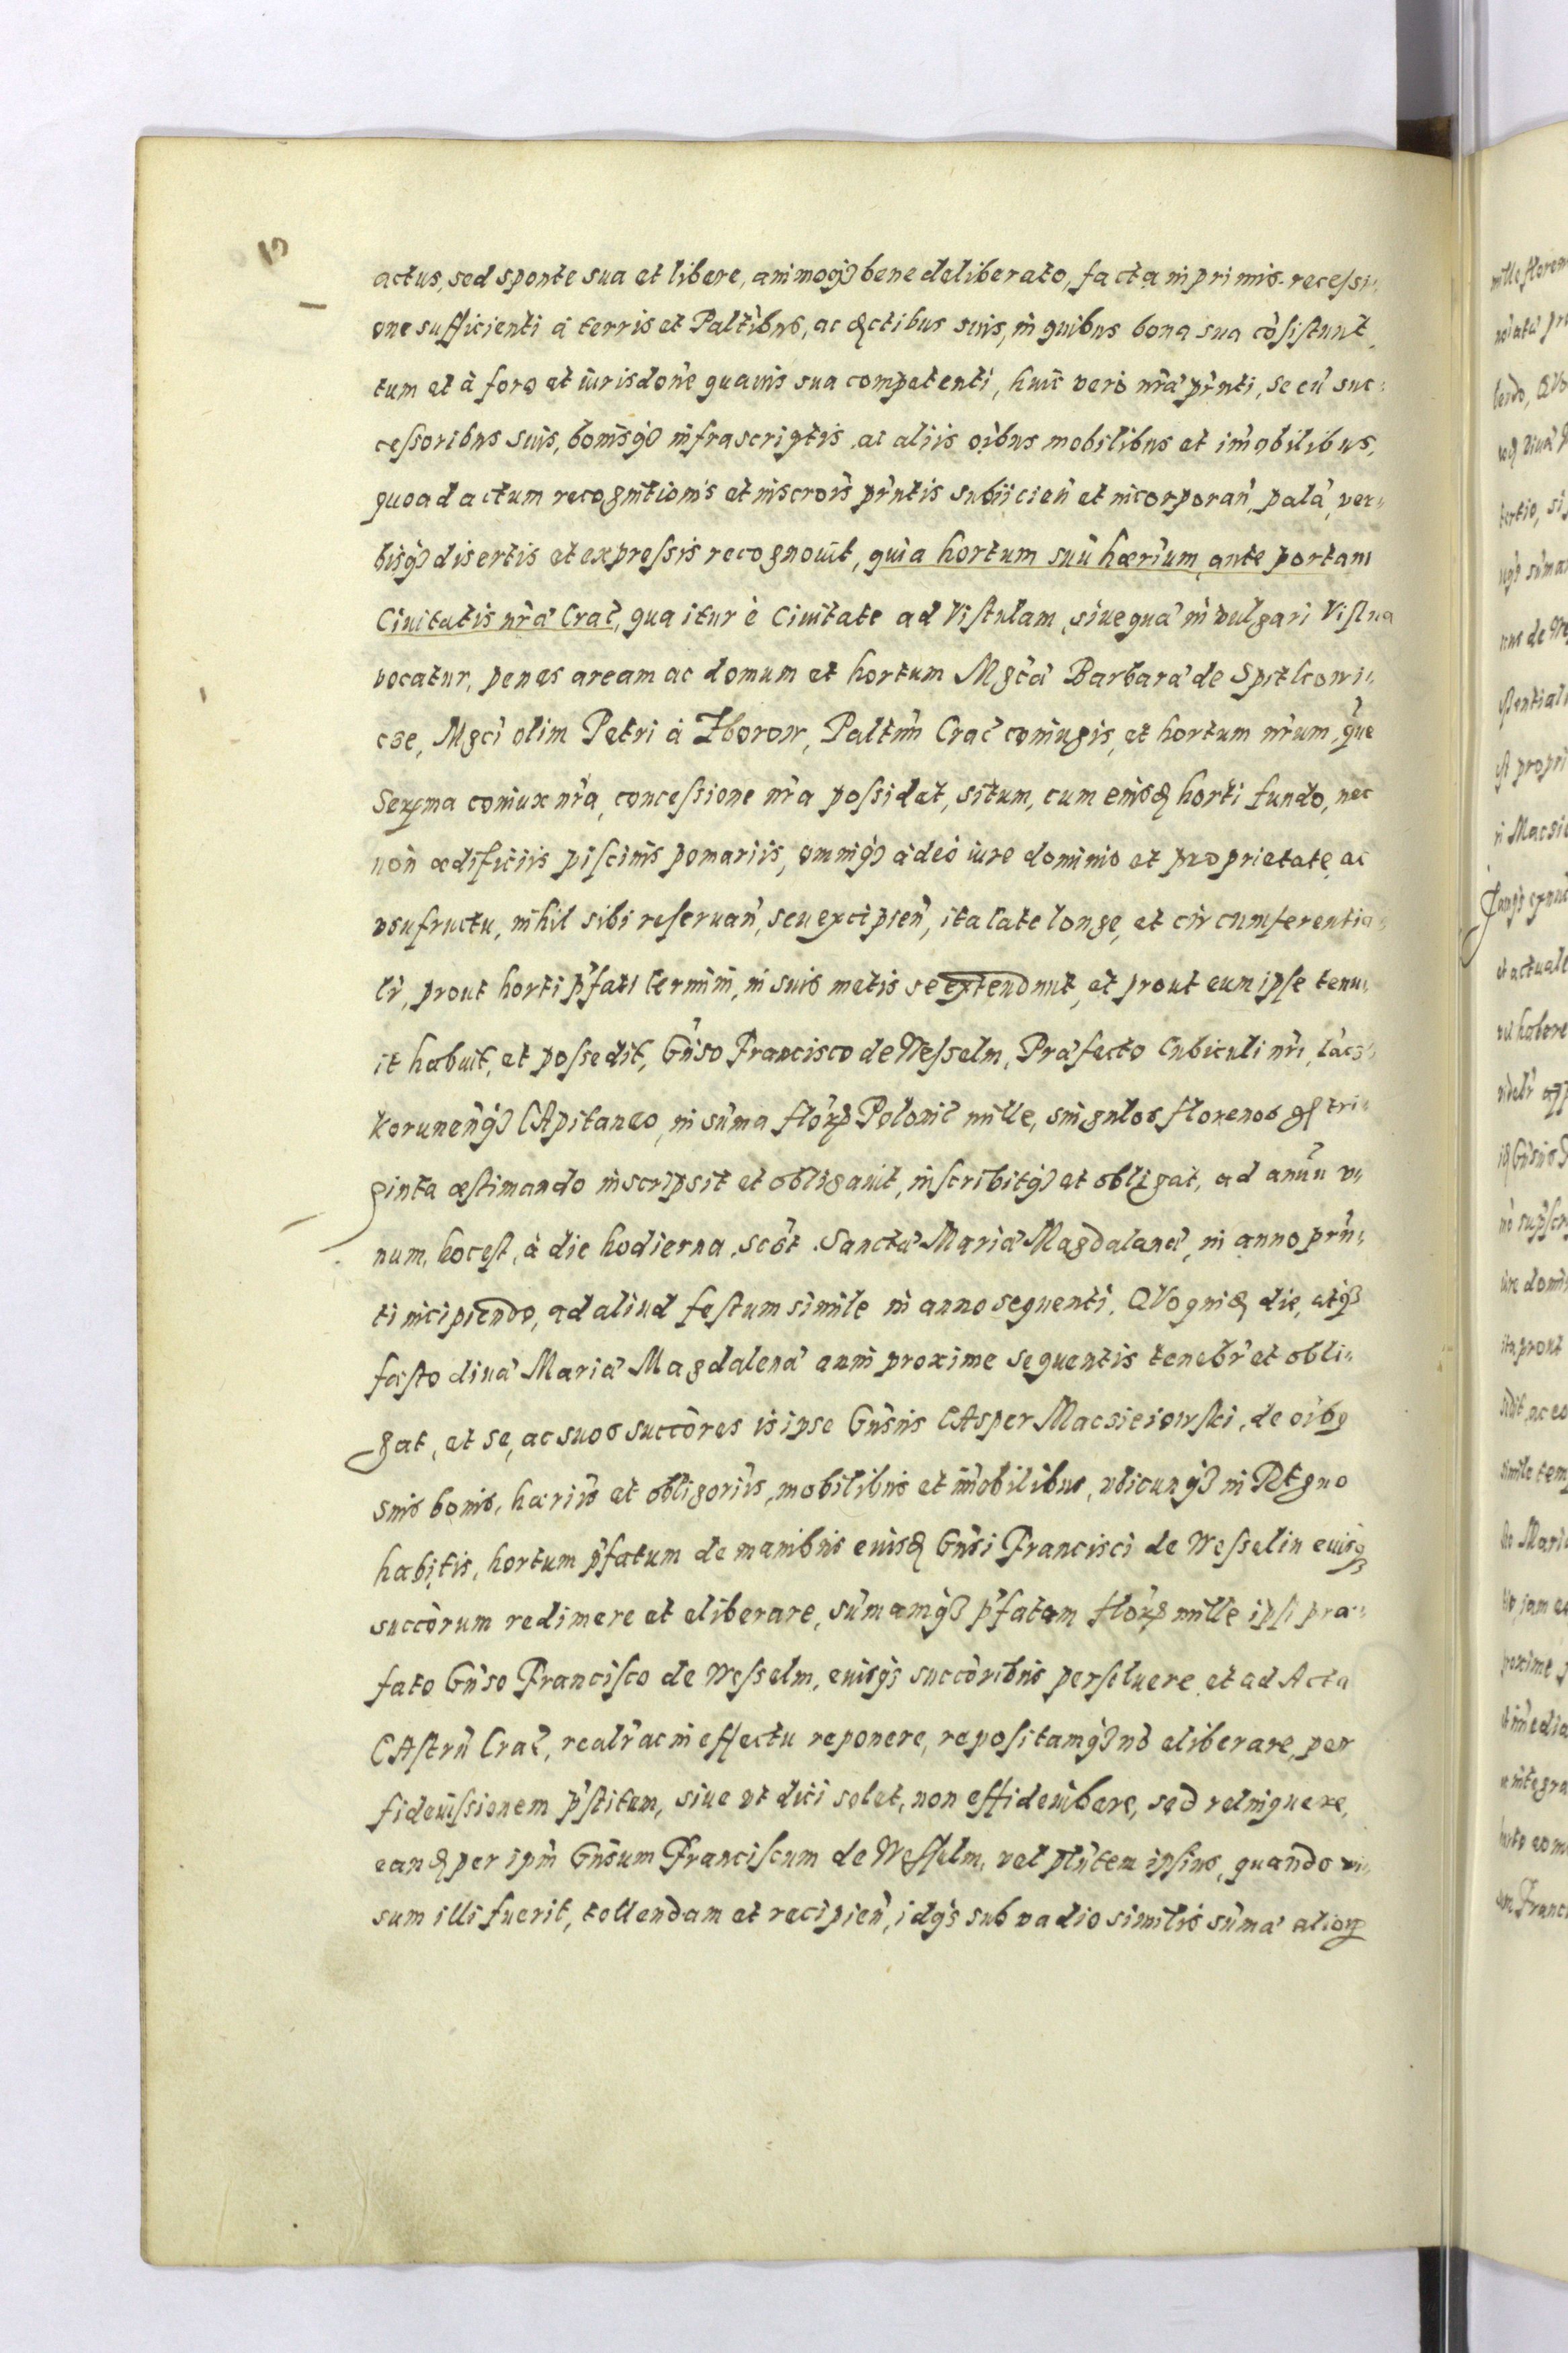 actus, sed sponte sua et libere, animoqȝ bene deliberato, facta inprimis recessi„
one sufficienti à terris et Paltibus, ac dictibus suis, in quibus bona sua cōsistunt
tum et à foro et iurisdone quavis sua competenti, huic vero nra prnti, se cū suc„
cessoribus suis, bonisqȝ infrascriptis ac aliis oibus mobilibus et imobilibus,
quoad actum recognitionis et inscrois prntis subiicien et incorporan, palā, ver„
bisqȝ disertis et expressis recognouit, quia hortum suū hærium, ante portam
Ciuitatis nræ Crac, qua itur è Ciuitate ad Vistulam, siue quæ in vulgari Visłna
vocatur, penes aream ac domum et hortum Mgcæ Barbaræ de Spitkowi„
cze, Mgci olim Petri à Zborow, Paltini Crac coniugis, et hortum nrum, que
Serma coniux nra, concessione nra possidet, situm, cum eiusd horti fundo, nec
non ædificiis piscinis pomariis, omniqȝ adeò iure dominio et proprietate, ac
vsufructu, nihil sibi reseruan, seu excipien, ita late longe, et circumferentia„
lr, prout horti pfati termini, in suis metis se extendunt, et prout eum ipse tenu„
it habuit, et possedit, Gnso Francisco de Wesselin, Præfecto Cubiculi nri, Lacz„
korunenqȝ CApitaneo, in suma florꝝ Polonic mille, singulos florenos ꝑ tri„
ginta æstimando inscripsit et obligauit, inscribitqȝ et obligat, ad annū v„
num, hoc est, à die hodierna, scōt Sanctæ Mariæ Magdalenæ, in anno prn„
ti incipiendo, ad aliud festum simile in anno sequenti. QVo quid die, atqȝ
festo diuæ Mariæ Magdalenæ anni proxime sequentis tenebr et obli„
gat, et se, ac suos succōres is ipse Gnsus CAsper Macsieiowski, de oibꝰ
suis bonis, hæriis et obligoriis, mobilibus et imobilibus, vbicunqȝ in REgno
habitis, hortum pfatum de manibus eiusd Gnsi Francisci de Wesselin eiusqȝ
succōrum redimere et eliberare, sumamqȝ pfatam florꝝ mille ipsi præ„
fato Gnso Francisco de Wesselin, eiusqȝ succōribus persoluere et ad Acta
CAstrn Crac, realr ac in effectu reponere, repositamqȝ nō eliberare, per
fideiussionem pstitam, siue vt dici solet, non effideiubere, sed relinquere,
eand per ipm Gnsum Franciscum de Wesselin, vel plntem ipsius, quando vi„
sum illi fuerit, tollendam et recipien, idqȝ sub vadio similis sumæ alioꝝ